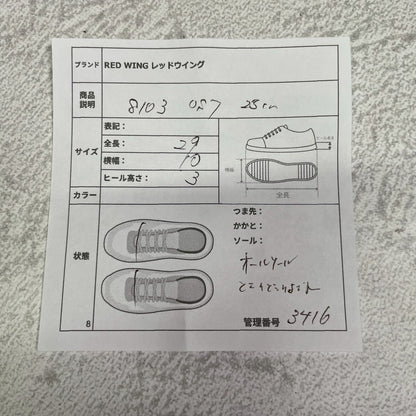 ブランド RED WING レッドウイング
商品説明 8103 25cm
サイズ
表記：
全長： 29
横幅： 10
ヒール高さ： 3
ヒール高さ
横幅
全長
カラー
状態
つま先：
かかと：
ソール：
オールソール
8
管理番号 3416